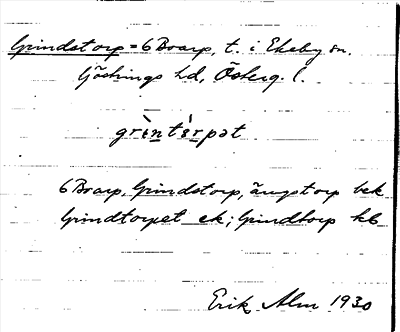 Grindstorp = 6 Boarp, t. i Ekeby sn.
Göstrings hd, Österg. l.
6 Boarp, Grindstorp, ängstorp bek
Grindtorpet ek; Grindtorp kb
Erik Alm 1930